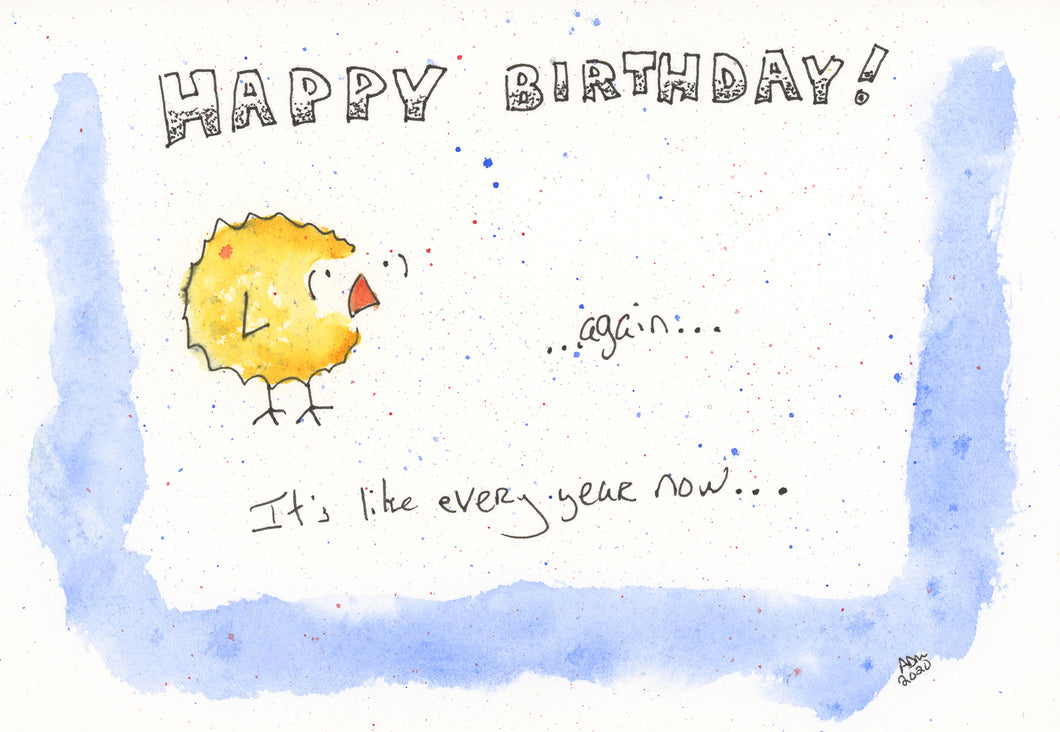 HAPPY BIRTHDAY!
...again...
It's like every year now...
ADM
2020